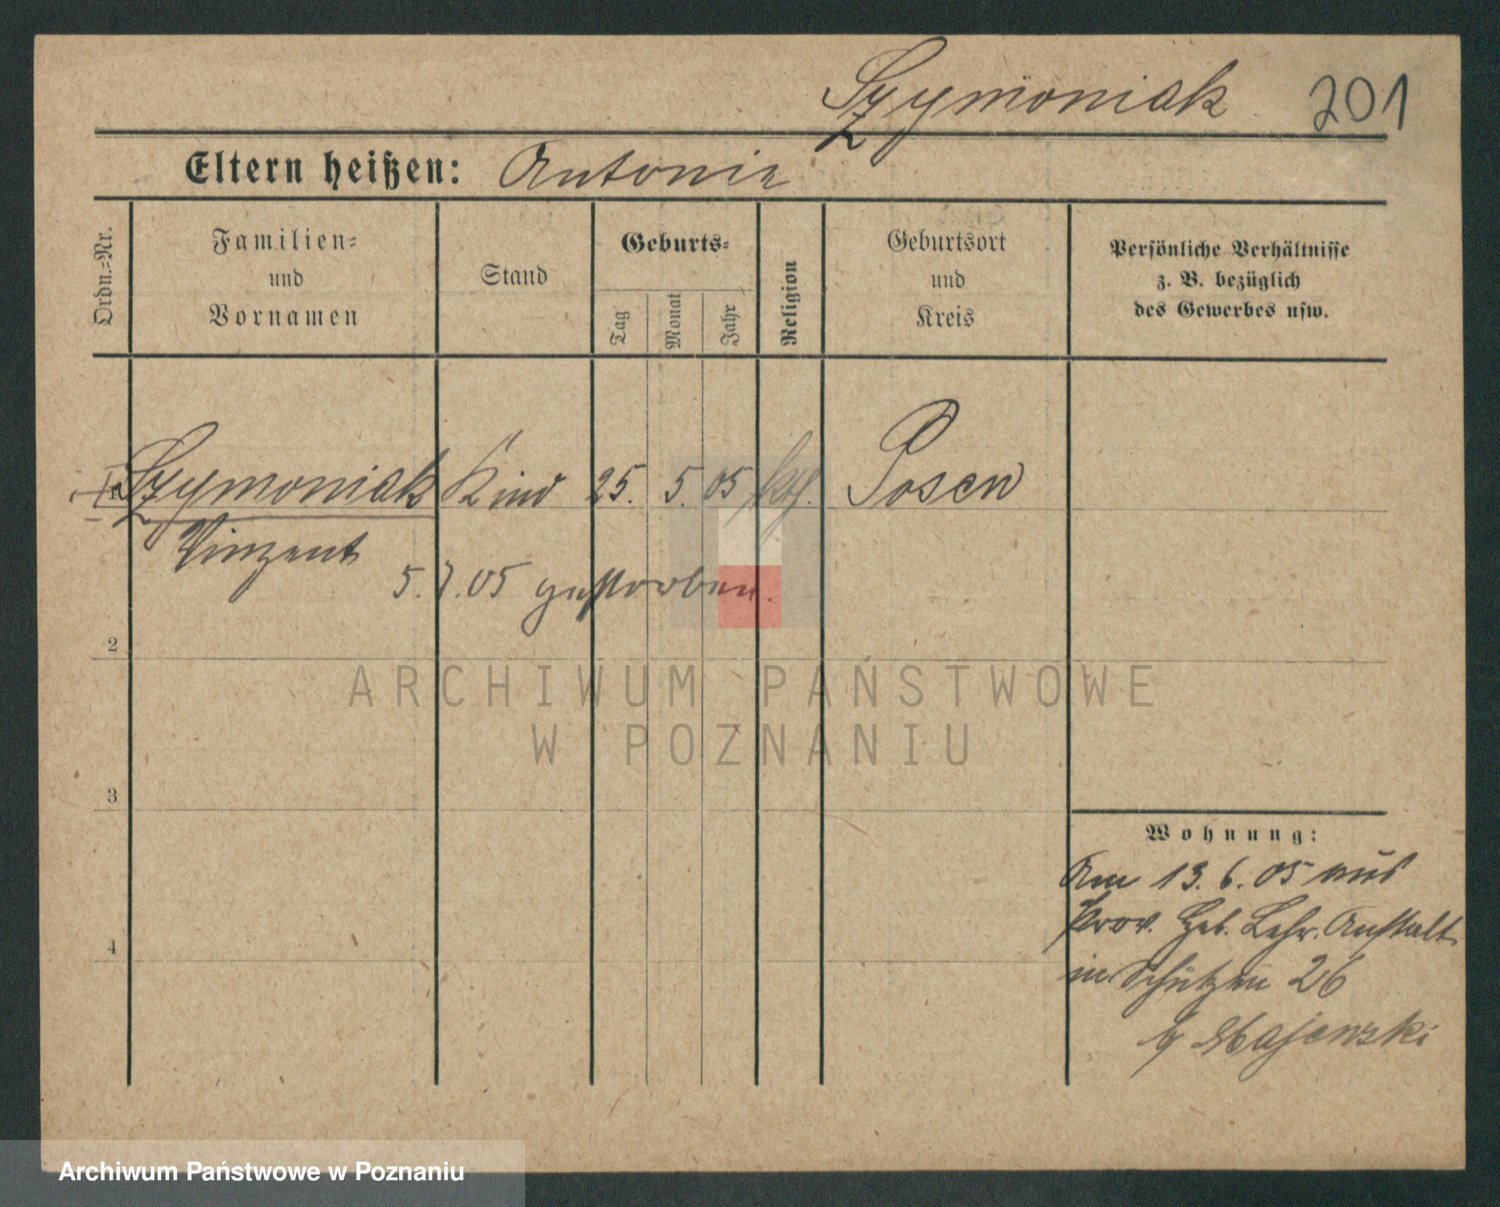 Szymoniak 201
Eltern heißen: Antonie
Ordn.-Nr.
Familien-
und
Vornamen
Stand
Geburts-
Tag
Monat
Jahr
Religion
Geburtsort
und
Kreis
Persönliche Verhältnisse
z. B. bezüglich
des Gewerbes usw.
Szymoniak Kind 25. 5. 05 Posen
Vinzent
5.7.05 gestorben.
2
ARCHIWUM PAŃSTWOWE
W POZNANIU
3
Wohnung:
Am 13. 6. 05 aus
Prov. Heb. Lehr. Anstalt
4
in Schützen 26
b/ Majewski
Archiwum Państwowe w Poznaniu